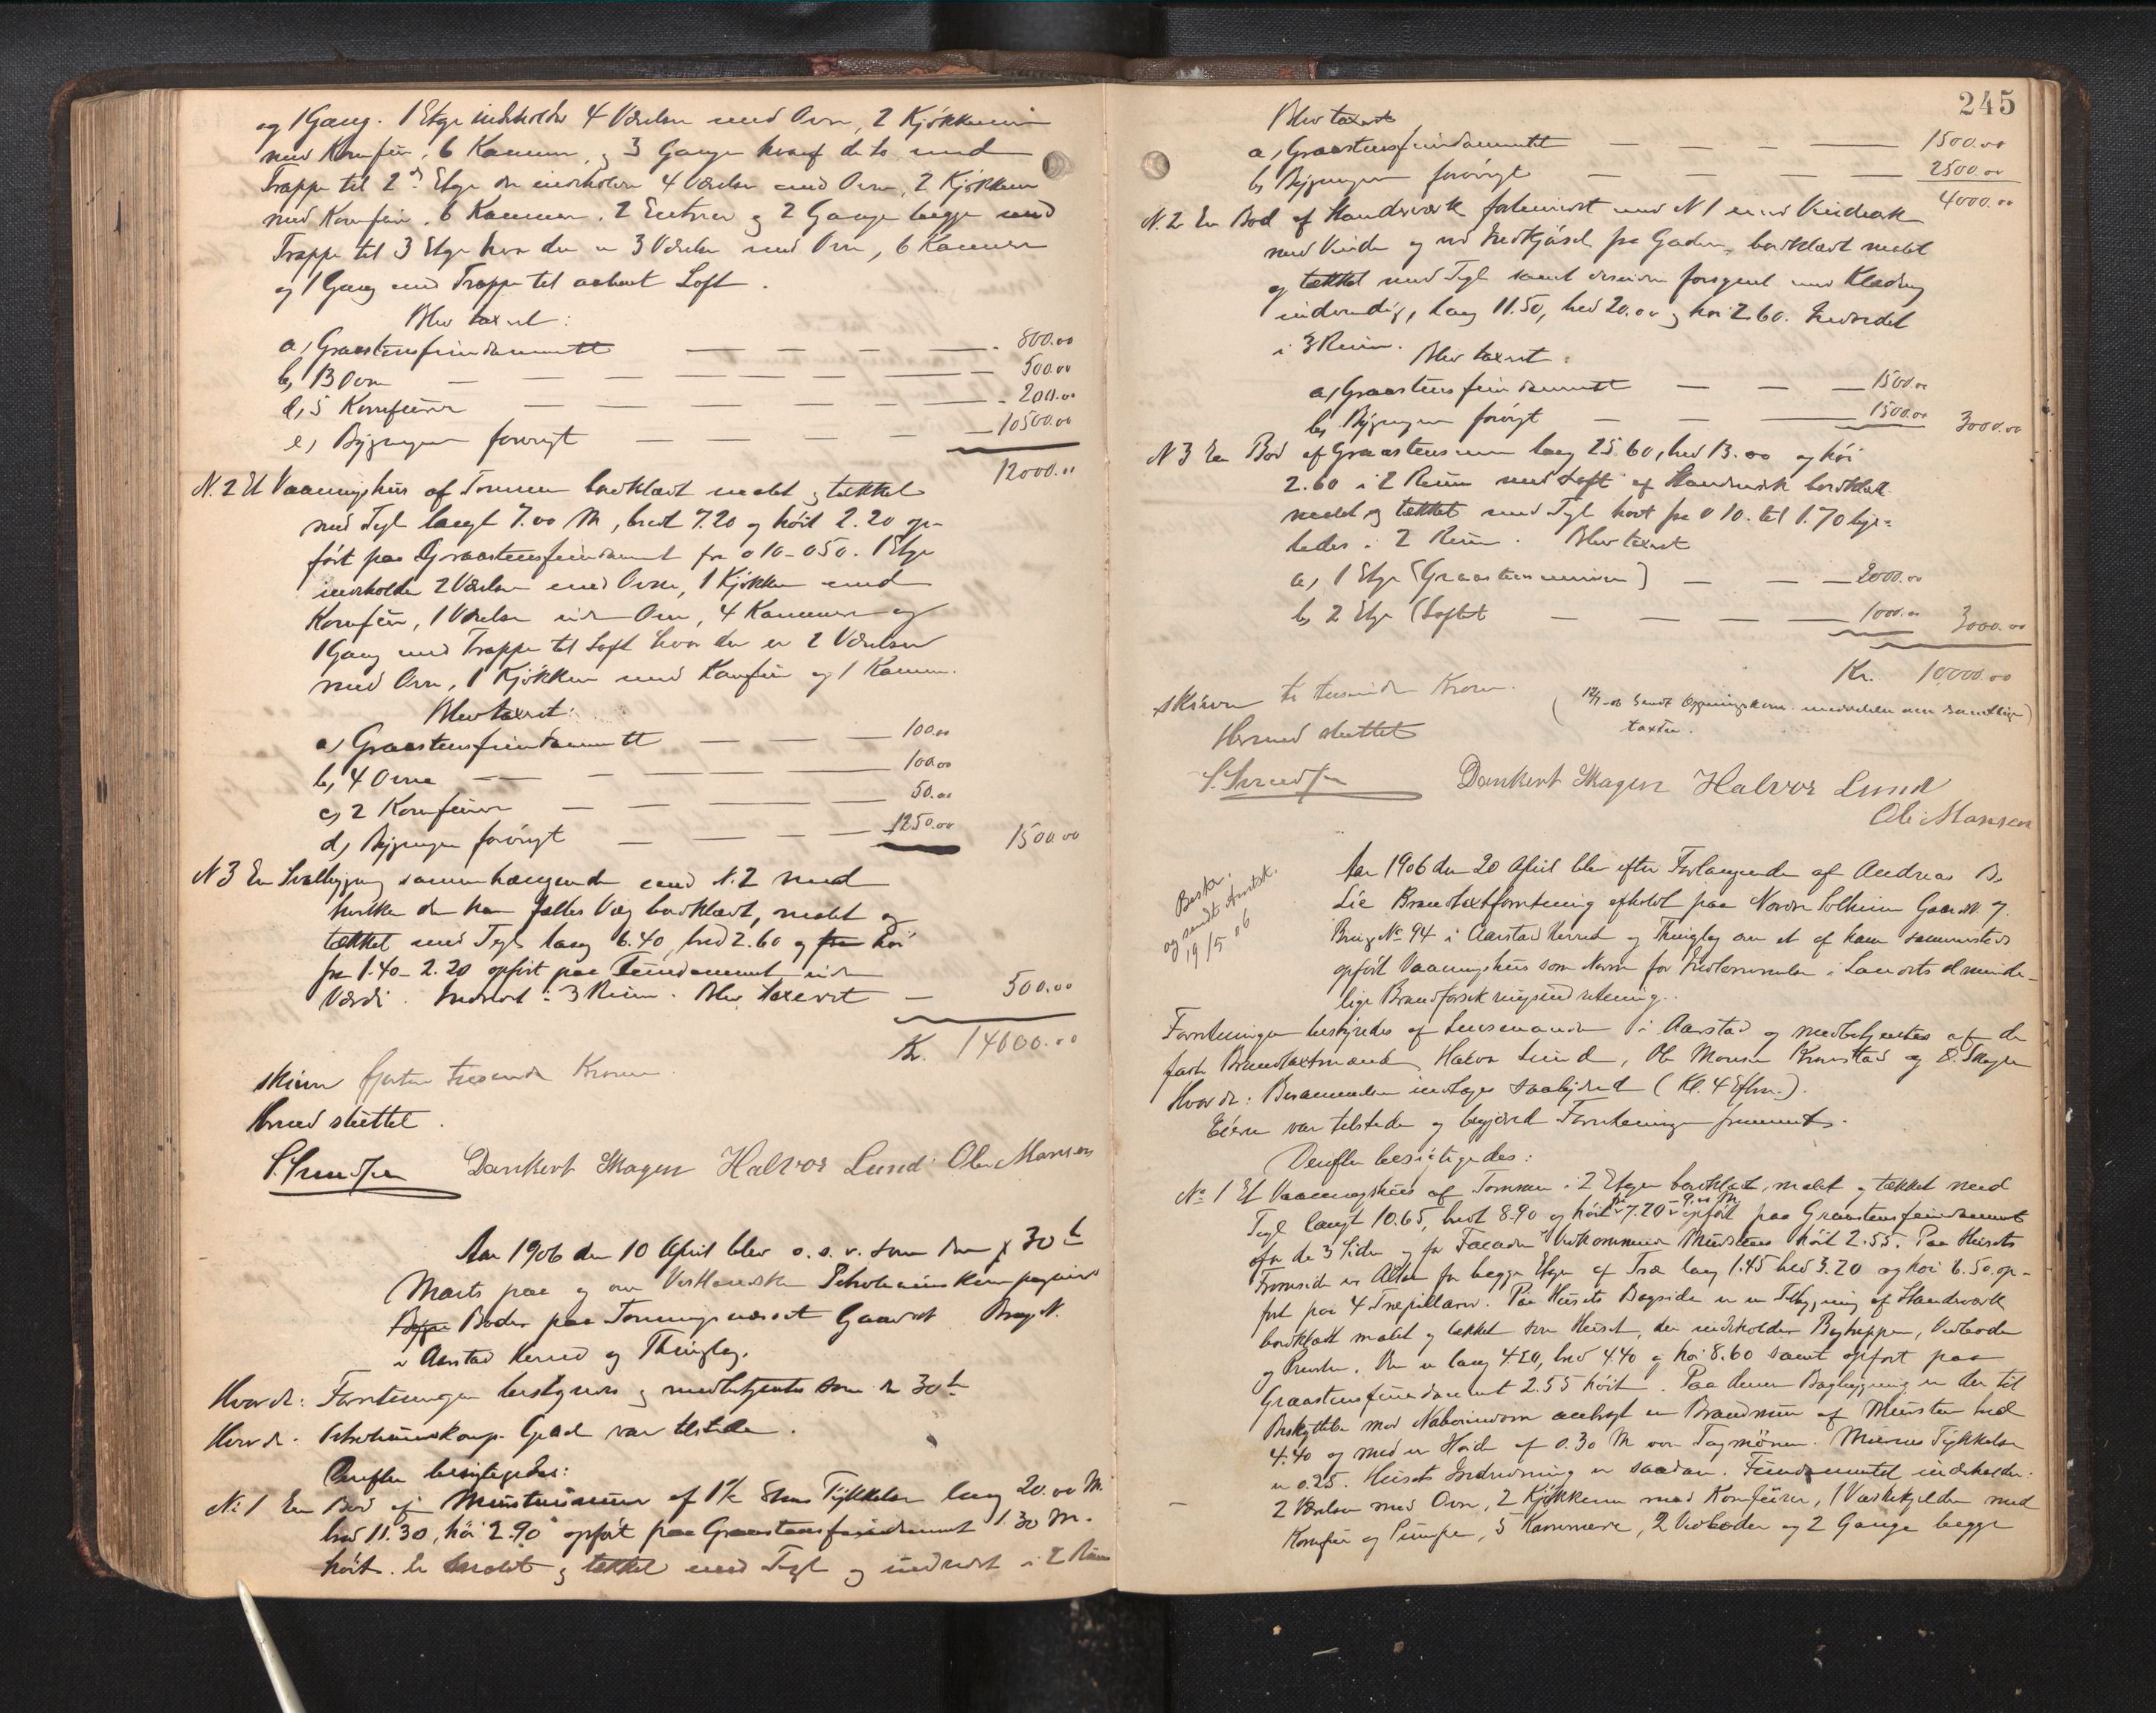 og 1 Gang. 1 Etge indeholder 4 Værelser med Ovn, 2 Kjøkkener
med Komfür, 6 Kammer og 3 Gange hvoraf de to med
Trappe til 2den Etge der indeholder 4 Værelser med Ovn, 2 Kjøkken
med Komfür, 6 Kammer, 2 Entreer og 2 Gange begge med
Trappe til 3 Etge hvor der er 3 Værelser med Ovn, 6 Kammer
og 1 Gang med Trappe til aabent Loft.
Blev taxeret:
a, Graastensfundamentet 800.00
b, 13 Ovne 500.00
d, 5 Komfürer 200.00
e, Bygningen forøvrigt 10500.00
12000.00
N. 2 Et Vaaningshus af Tømmer bordklædt malet og tækket
med Tegl langt 7.00 M, bredt 7.20 og høit 2.20 op-
ført paa Graastensfundament fra 0 10 - 0 50. 1 Etge
indeholder 2 Værelser med Ovne, 1 Kjøkken med
Komfür, 1 Værelse uden Ovn, 4 Kammer og
1 Gang med Trappe til Loft hvor der er 2 Værelser
med Ovn, 1 Kjøkken med Komfür og 1 Kammer.
Blev taxeret:
a, Graastensfundamentet 100.00
b, 4 Ovne 100.00
c, 2 Komfürer 50.00
d, Bygningen forøvrigt 1250.00 1500.00
N 3 En Svalbygning sammenhængende med N. 2 med
hvilken den har fælles Væg bordklædt, malet og
tækket med Tegl lang 6.40, bred 2.60 og høi
fra 1.40 - 2.20 opført paa Fundament uden
Værdi. Indredet i 3 Rum. Blev taxeret 500.00
Kr. 14000.00
skriver fjorten tusende Kroner.
Hermed sluttet.
Dankert Skagen Halvor Lund Ole Monsen
Aar 1906 den 10 April blev o. s. v. som den 30te
Marts paa og over Vestlandske Petroleumskompagnis
Boder paa Gaards Brugs N.
i Aarstad Herred og Thinglag.
Hvorda: Forretningen bestyredes og medbetjentes som den 30te
Hvorda: Petroleumskomp. var tilstede.
Derefter besigtigedes:
No 1 En Bod af Mürstensmur af 1½ Stens Tykkelse lang 20.00 M.
bred 11.30, høi 2.90 opført paa Graastensfundament 1.30 M.
høit. Er malet og tækket med Tegl og indredet i 2 Rum
245
Blev taxeret
a, Graastensfundamentet 1500.00
b, Bygningen forøvrigt 2500.00
4000.00
N. 2 En Bod af Standværk forbundet med N 1
med Vinduer og med Indkjørsel fra Gaden, bordklædt malet
og tækket med Tegl samt desuden forsynet med Klædning
indvendig, lang 11.50, bred 20.00 og høi 2.60. Indredet
i 3 Rum.
Blev taxeret:
a, Graastensfundamentet 1500.00
b, Bygningen forøvrigt 1500.00 3000.00
N 3 En Bod af Graastensmur lang 25.60, bred 13.00 og høi
2.60 i 2 Rum med Loft af Standværk bordklædt
malet og tækket med Tegl høit fra 0 10. til 1.70 lige-
ledes i 2 Rum. Blev taxeret
a, 1 Etge (Graastensmuren) 2000.00
b, 2 Etge (Loftet 1000.00 3000.00
Kr. 10,000.00
skriver ti tusinde Kroner.
(12/5 06 sendt meddelelse om samtlige
taxter.)
Hermed sluttet
Dankert Skagen Halvor Lund
Ole Monsen
Beskr.
og sendt Amtsk.
19/5 06
Aar 1906 den 20 April blev efter Forlangende af Andreas B.
Lie Brandtaxtforretning afholdt paa Nordre Solheim Gaards N. 7
Brugs No 94 i Aarstad Herred og Thinglag over et af ham sammesteds
opført Vaaningshus som Norm for Indlemmelse i Landets alminde-
lige Brandforsikringsindretning.
Forretningen bestyredes af Lensmanden i Aarstad og medbetjentes af de
faste Brandtaxtmænd, Halvor Lund, Ole Monsen Kronstad og D. Skagen
Hvorda: Berammelsen indtages saalydende (Kl. 4 Eftm.).
Eieren var tilstede og begjærede Forretningen fremmet.
Derefter besigtigedes:
No 1 Et Vaaningshus af Tømmer i 2 Etger bordklædt, malet og tækket med
Tegl langt 10.65, bredt 8.90 og høit fra 7.20 - 9.00 M opført paa Graastensfundament
for de 3 Sider og for Facaden Vedkommende Mursten høit 2.55. Paa Husets
Fremside er Altan for begge Etger af Træ lang 1.45 bred 3.20 og høi 6.50. op-
ført paa 4 Træpillarer. Paa Husets Bagside er en Tilbygning af Standværk
bordklædt malet og tækket som Huset, der indeholder Bagtrappen, Vedboder
og Priveter. Den er lang 4.20, bred 4.40 og høi 8.60 samt opført paa
Graastensfundament 2.55 høit. Paa denne Bagbygning er der til
Beskyttelse mod Naboeiendom anbragt en Brandmur af Mursten bred
4.40 og med en Høide af 0.30 M over Tagmønen. Murens Tykkelse
er 0.25. Husets Indredning er saadan. Fundamentet indeholder:
2 Værelser med Ovn, 2 Kjøkkener med Komfürer, 1 Vaskekjelder med
Komfur og Pumpe, 5 Kammere, 2 Vedboder og 2 Gange begge